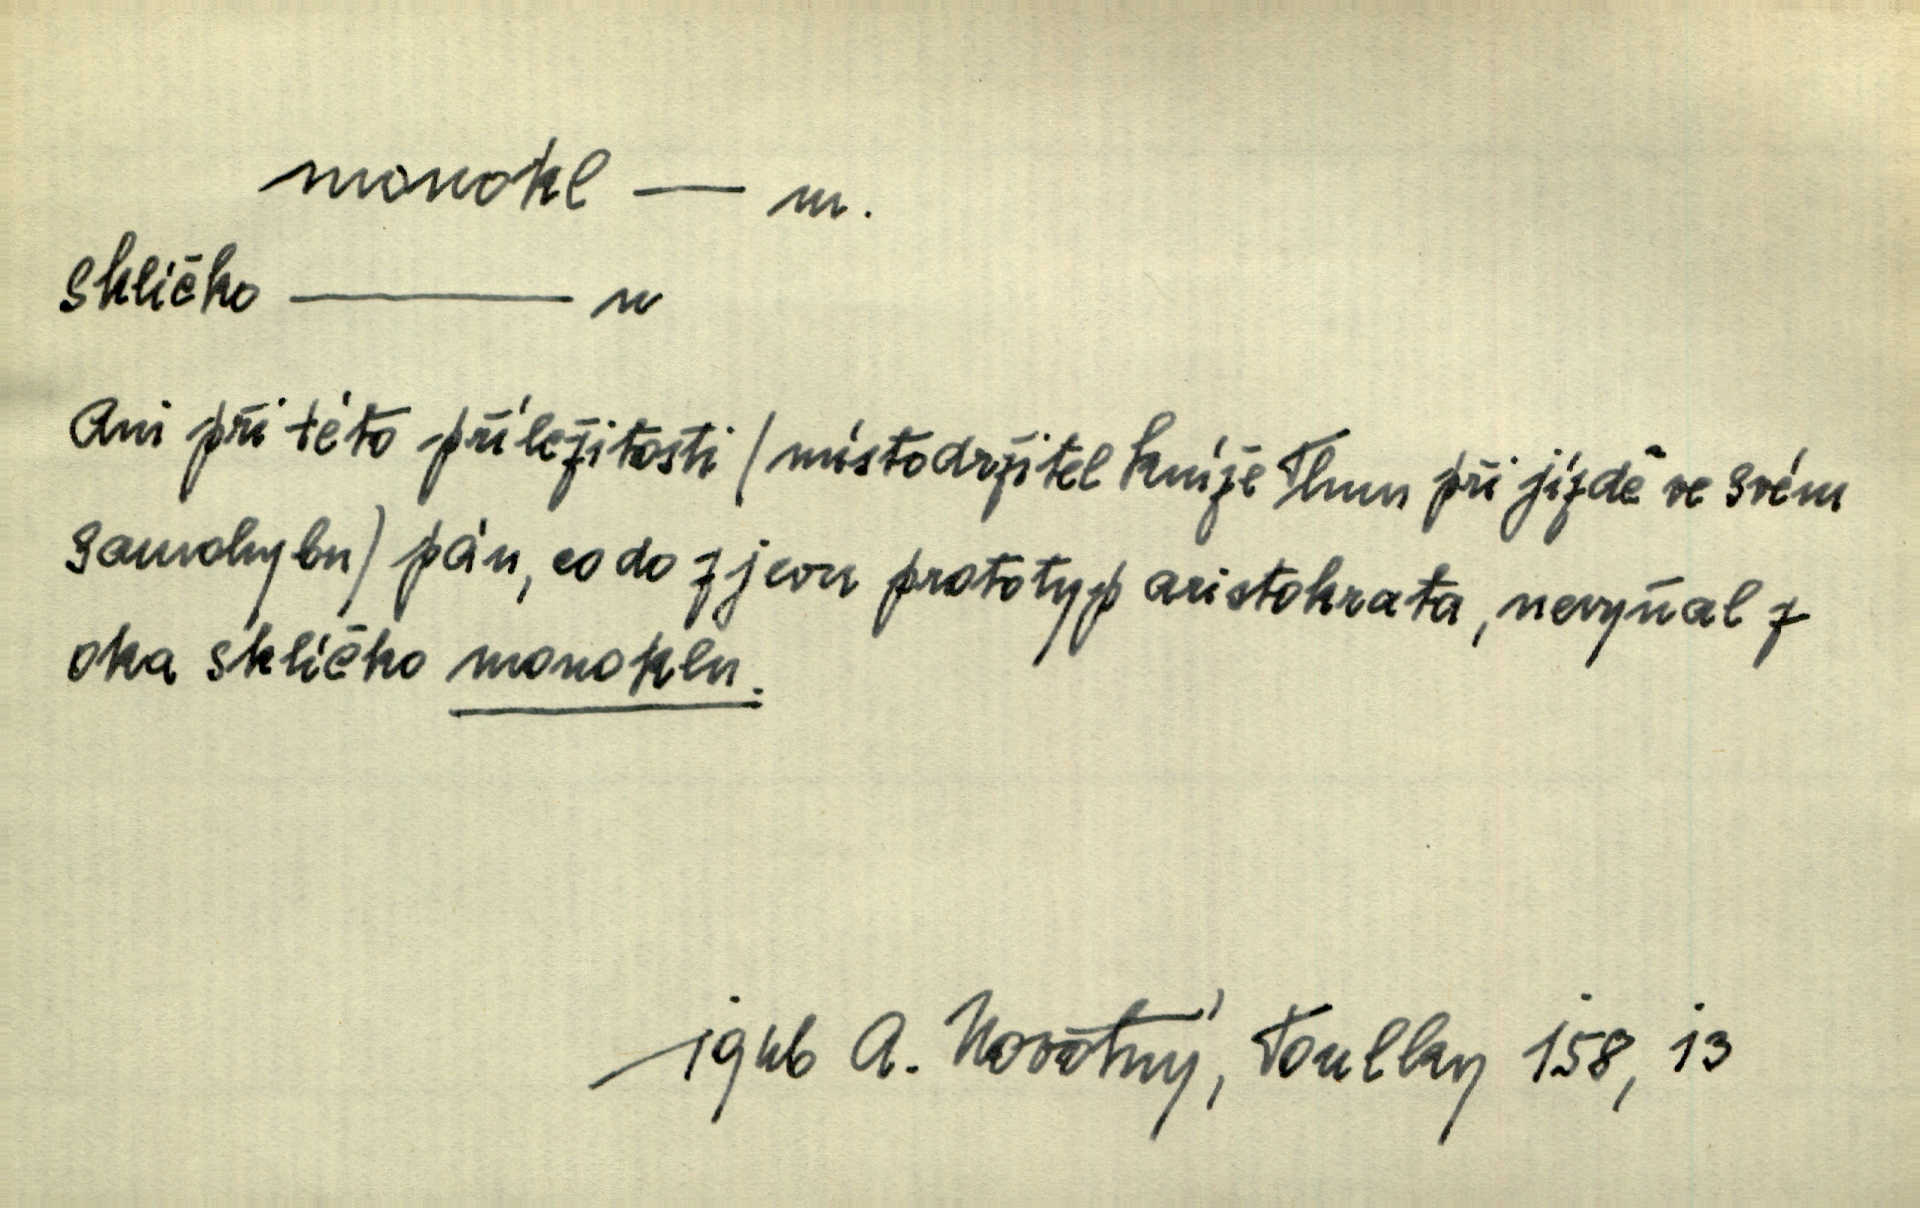 monokl — m.
sklíčko — n
Ani při této příležitosti (místodržitel kníže Thun při jízdě ve svém
samohybu) pán, co do zjevu prototyp aristokrata, nevyňal z
oka sklíčko monoklu.
1946 A. Novotný, Toulky 158, 13